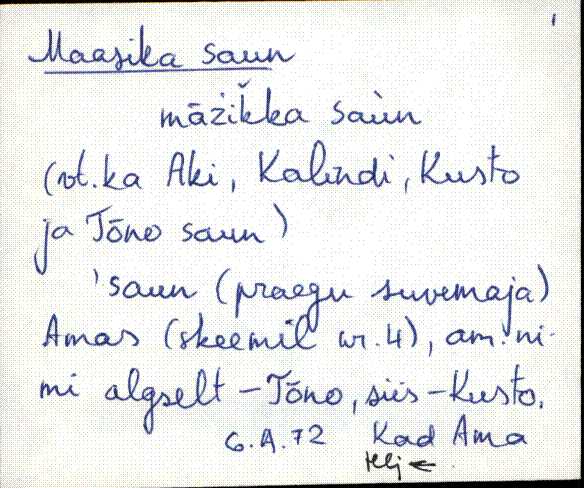 1
Maasika saun
māžikka saùn
(vt. ka Aki, Kalindi, Kusto
ja Tōno saun)
'saun (praegu suvemaja)
Amas (skeemil nr. 4), am. ni-
mi algselt – Tōno, siis – Kusto.
6.A.72 Kad Ama